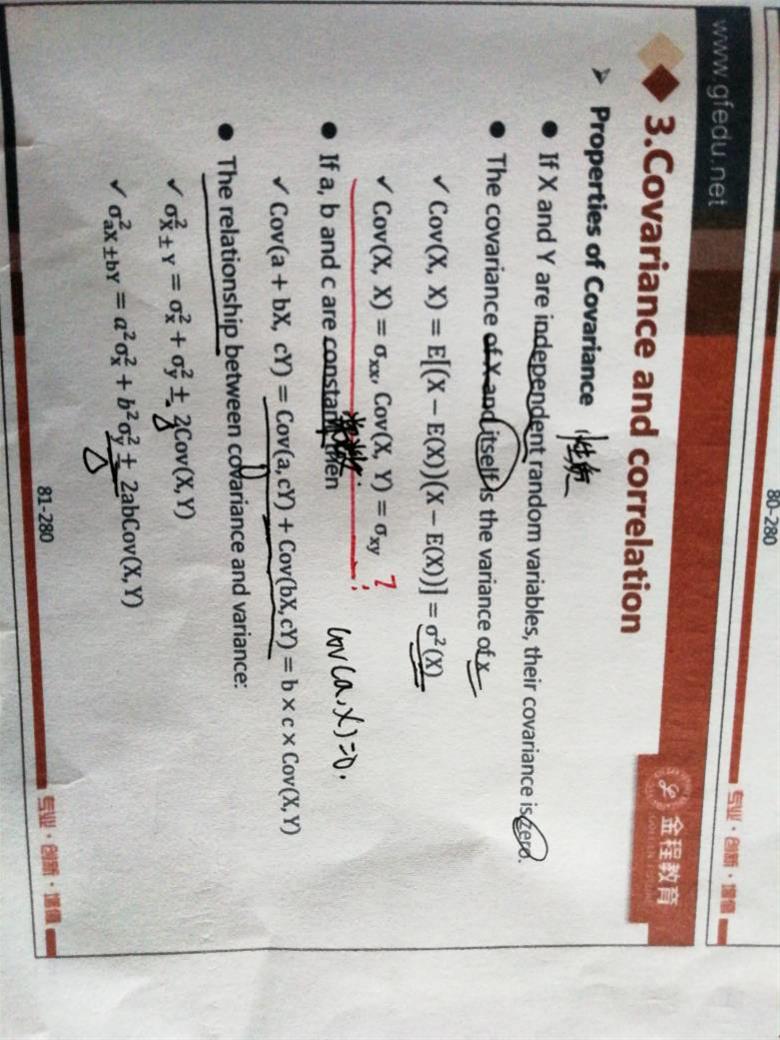 80-280
专业·创新·增值
www.gfedu.net
3.Covariance and correlation
金程教育
GOLDEN FUTURE
➢ Properties of Covariance 性质
● If X and Y are independent random variables, their covariance is zero.
● The covariance of X and itself is the variance of x
✓ Cov(X, X) = E[(X − E(X))(X − E(X))] = σ²(X)
✓ Cov(X, X) = σxx, Cov(X, Y) = σxy ?
● If a, b and c are constant, then
cov(a,X)=0.
✓ Cov(a + bX, cY) = Cov(a, cY) + Cov(bX, cY) = b × c × Cov(X, Y)
● The relationship between covariance and variance:
✓ σ²X±Y = σ²x + σ²y ± 2Cov(X, Y)
✓ σ²aX±bY = a²σ²x + b²σ²y ± 2abCov(X, Y)
81-280
专业·创新·增值